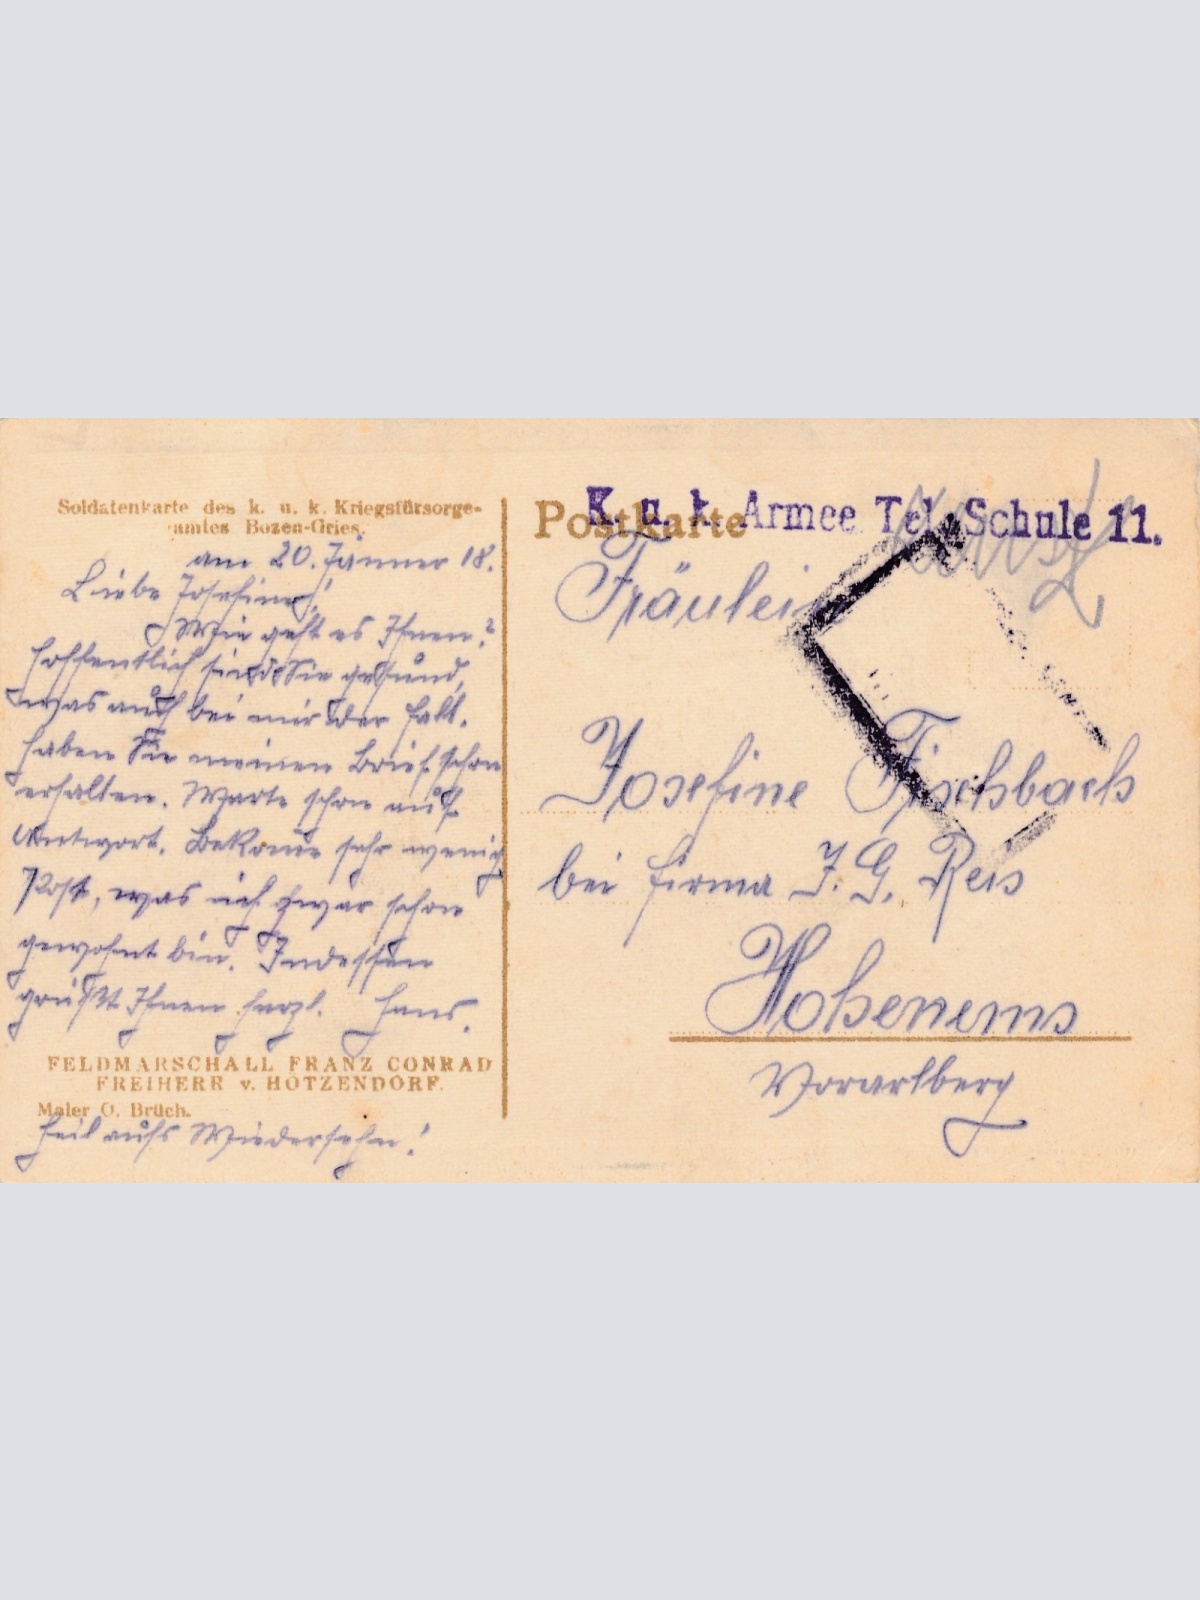 Soldatenkarte des k. u. k. Kriegsfürsorge-
amtes Bozen-Gries.
am 20. Jänner 18.
Liebe Josefine!
Wie geht es Ihnen?
hoffentlich sind Sie gesund,
was auch bei mir der Fall.
haben Sie meinen Brief schon
erhalten. Warte schon auf
Antwort. Bekome sehr wenig
Post, was ich zwar schon
gewohnt bin. Indessen
grüßt Ihnen herzl. Hans.
FELDMARSCHALL FRANZ CONRAD
FREIHERR v. HÖTZENDORF.
Maler O. Brüch.
Heil aufs Wiedersehn!
Postkarte
K. u. k. Armee Tel. Schule 11.
Fräulein
Josefine Fischbach
bei Firma J. G. Reis
Hohenems
Vorarlberg